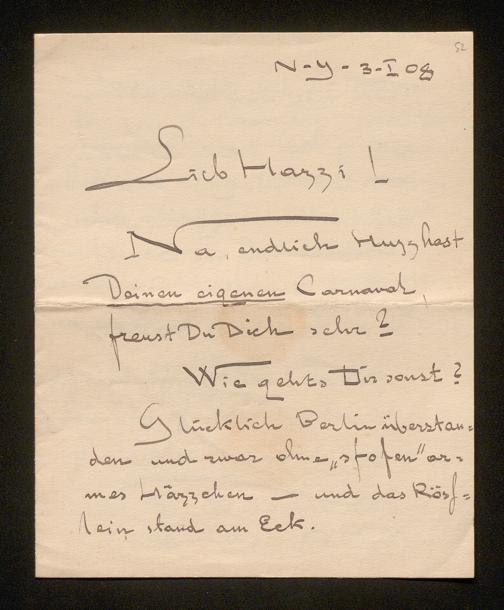 52
N-Y-3-I 08
Lieb Hazzi!
Na, endlich Muzz hast
Deinen eigenen Carnaval,
freust Du Dich sehr?
Wie gehts Dir sonst?
Glücklich Berlin überstan-
den und zwar ohne „stofen" ar-
mes Häzzchen — und das Rösf-
lein stand am Eck.